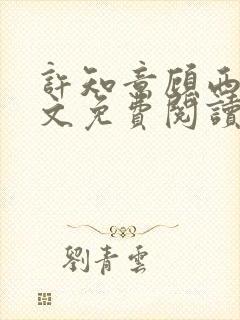 許知意顧西
文免費閱讀
劉青雲